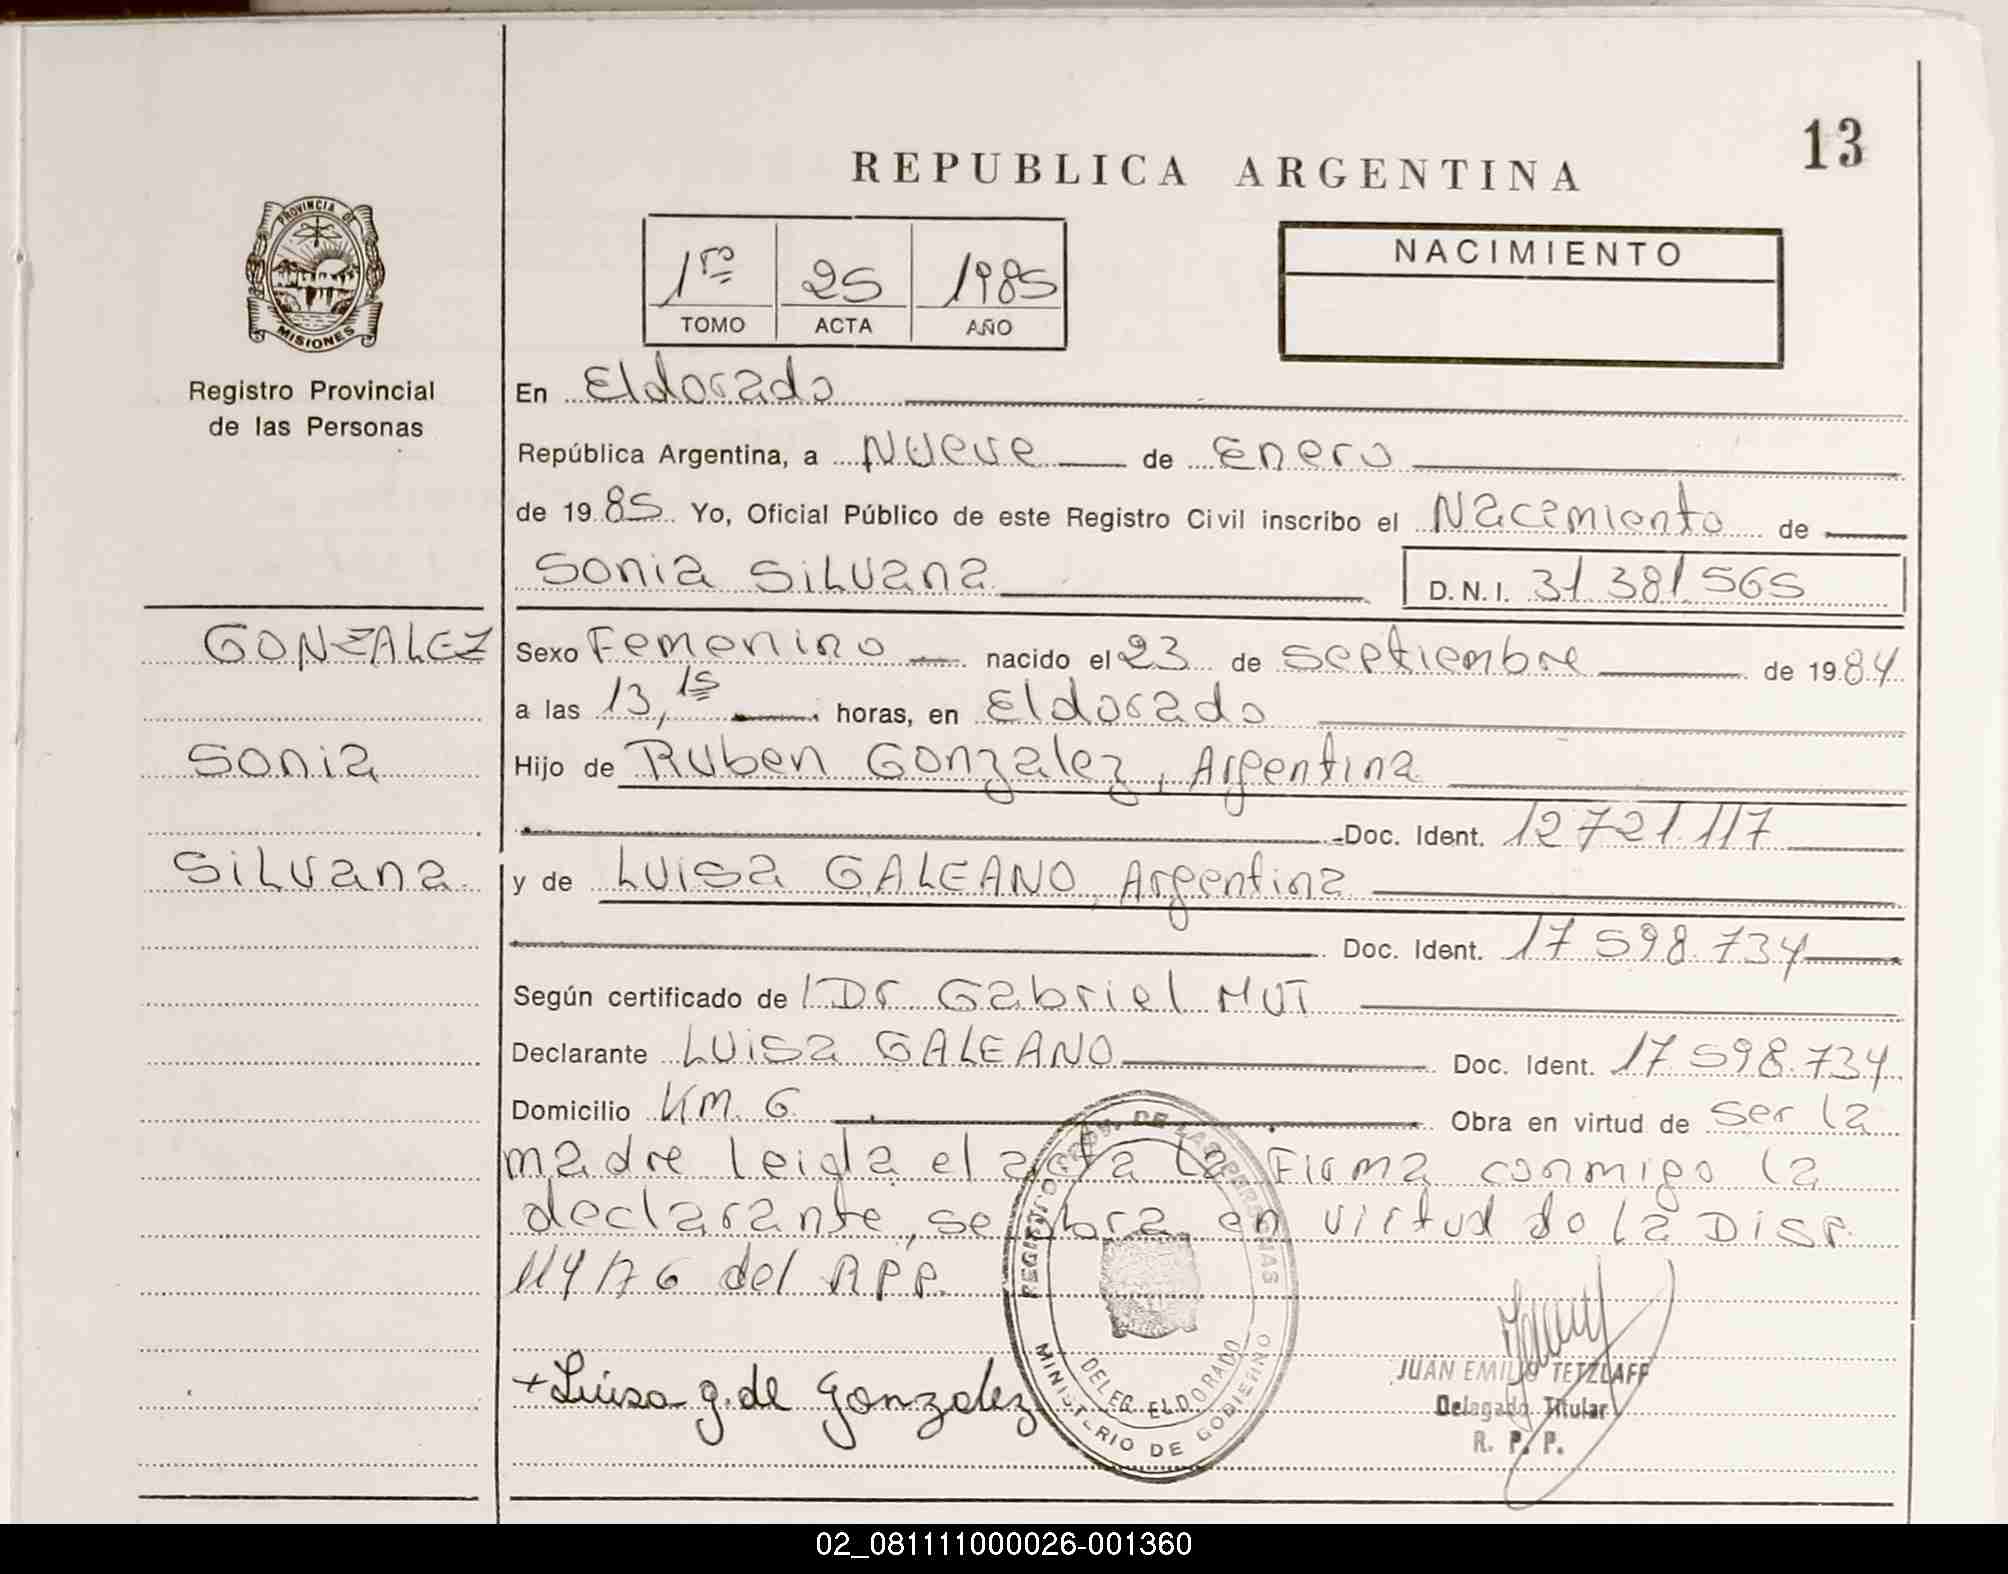 13
REPUBLICA ARGENTINA
PROVINCIA DE
MISIONES
Registro Provincial
de las Personas
1ro 25 1985
TOMO ACTA AÑO
NACIMIENTO
En Eldorado
República Argentina, a Nueve de Enero
de 1985 Yo, Oficial Público de este Registro Civil inscribo el Nacemiento de
Sonia Silvana D.N.I. 31 381 565
GONZALEZ
Sonia
Silvana
Sexo Femenino nacido el 23 de Septiembre de 1984
a las 13,15 horas, en Eldorado
Hijo de Ruben Gonzalez, Argentina
Doc. Ident. 12 721 117
y de Luisa GALEANO, Argentina
Doc. Ident. 17 598.734
Según certificado de Dr Gabriel MUT
Declarante Luisa GALEANO Doc. Ident. 17.598.734
Domicilio Km. 6 Obra en virtud de ser la
madre leida el acta la Firma conmigo la
declarante, se obra en virtud de la Disp.
114/76 del RPP.
REGISTRO PROV. DE LAS PERSONAS
DELEG. ELDORADO
MINISTERIO DE GOBIERNO
+Luisa g. de gonzalez
JUAN EMILIO TETZLAFF
Delegado Titular
R. P. P.
02_081111000026-001360